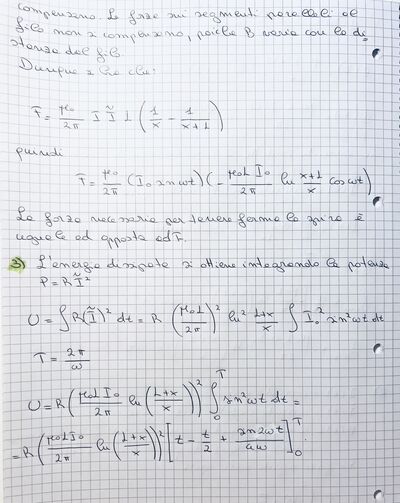 compensano. Le forze sui segmenti paralleli al
filo non si compensano, poiché B varia con la di
stanza dal filo.
Dunque si ha che:
F̄ = μ₀/2π I Ĩ L (1/x − 1/(x+L))
quindi
F̄ = μ₀/2π (I₀ sin ωt) (− μ₀L I₀/2π ln (x+L)/x cos ωt)
La forza necessaria per tenere ferma la spira è
uguale ed opposta ad F.
3) L'energia dissipata si ottiene integrando la potenza
P = R Ĩ²
U = ∫ R(Ĩ)² dt = R (μ₀L/2π)² ln² (L+x)/x ∫ I₀² sin² ωt dt
T = 2π/ω
U = R (μ₀L I₀/2π ln ((L+x)/x))² ∫₀ᵀ sin² ωt dt =
= R (μ₀L I₀/2π ln ((L+x)/x))² [t − t/2 + sin 2ωt/4ω]₀ᵀ